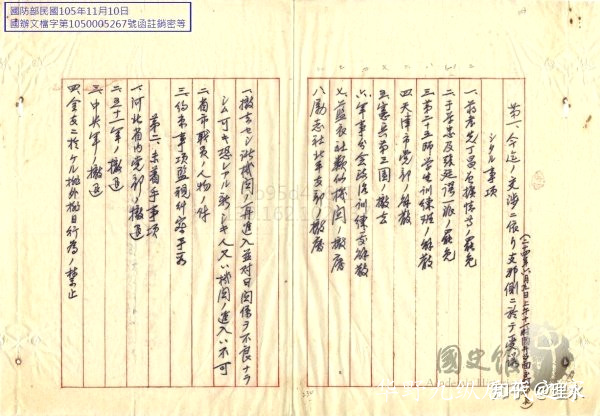 國防部民國105年11月10日
國辦文檔字第1050005267號函註銷密等
第一、今迄ノ交渉ニ依リ支那側ニ於テ受諾
シタル事項
一、蒋孝先丁昌曾擴情等ノ罷免
二、于学忠及張廷諤一派ノ罷免
三、第二五師学生訓練班ノ解散
四、天津市党部ノ解散
五、憲兵第三団ノ撤去
六、軍事分会政治訓練処解散
七、藍衣社類似機関ノ撤廃
八、励志社北平支部ノ撤廃
一、撤去セシ諸機関ノ再進入並対日関係ヲ不良ナラ
シム可キ恐レアル新シキ人又ハ機関ノ進入ハ不可
二、省市職員ノ人物ノ件
三、約束事項監視糾察
第二、未着手事項
一、河北省内党部ノ撤退
二、五十一軍ノ撤退
三、中央軍ノ撤退
四、全支ニ於ケル排外排日行為ノ禁止
國史館
知乎 @理水